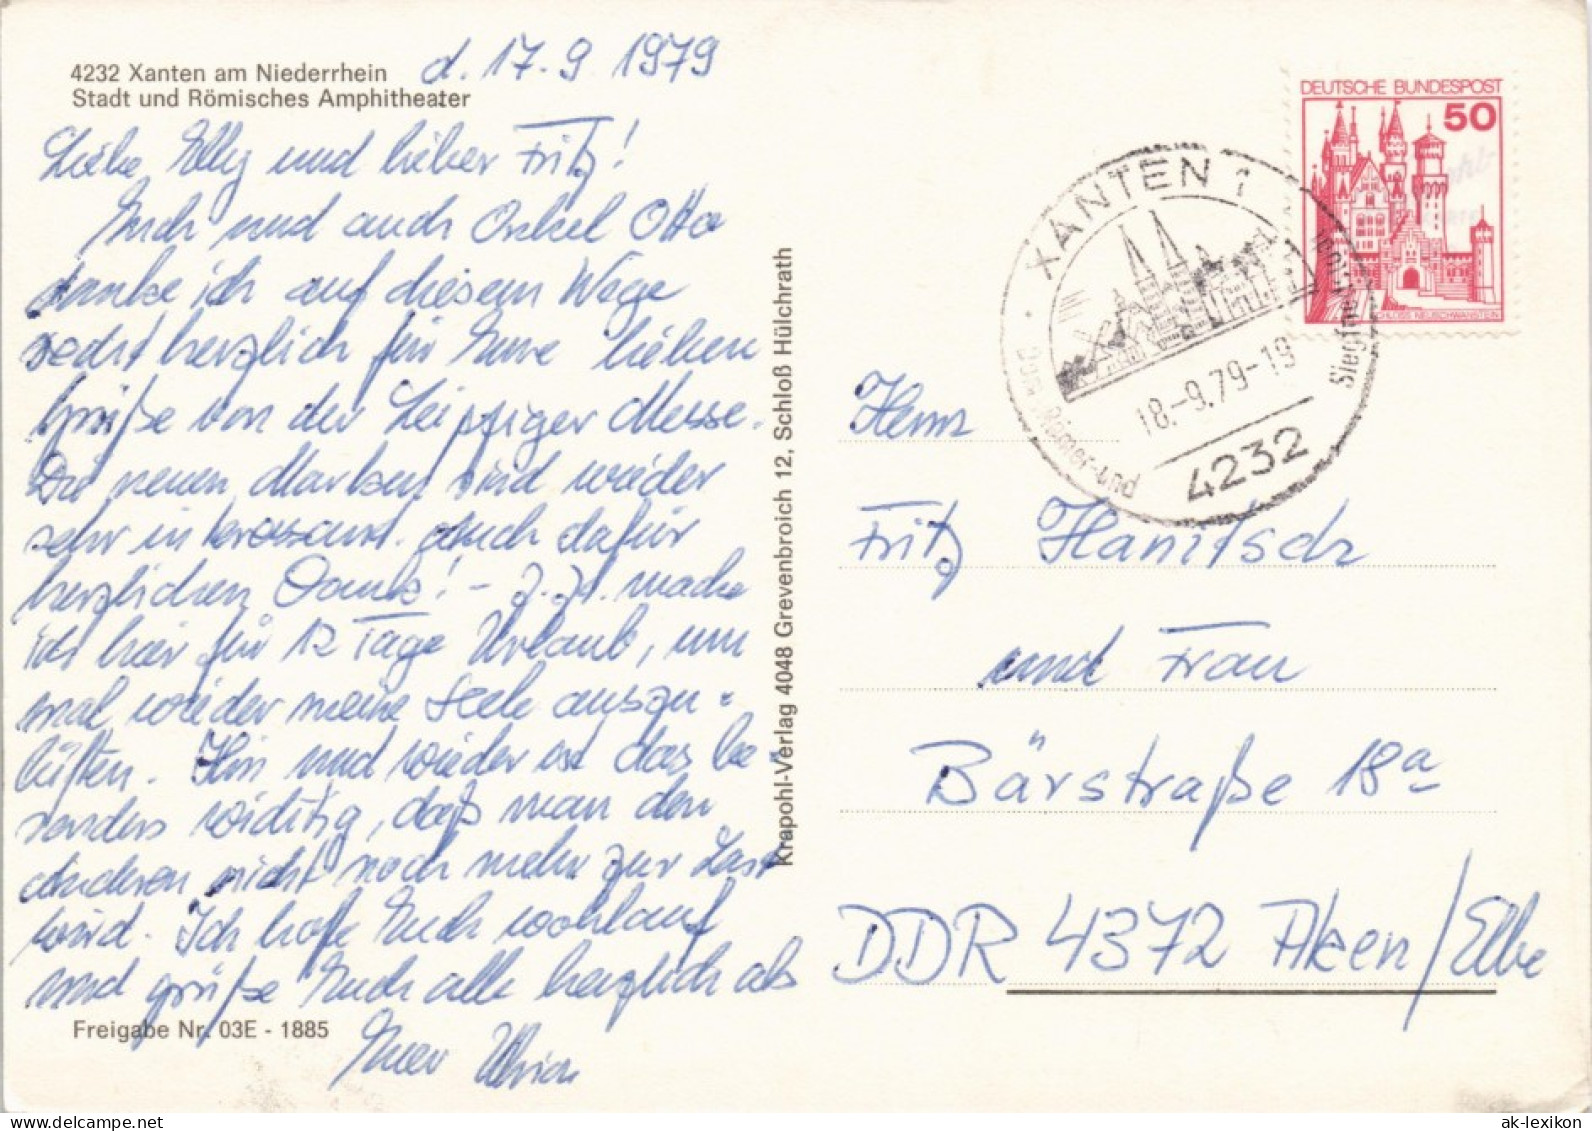 4232 Xanten am Niederrhein
Stadt und Römisches Amphitheater
d. 17.9.1979
Liebe Elly und lieber Fritz!
Euch und auch Onkel Otto
danke ich auf diesem Wege
recht herzlich für Eure lieben
Grüße von der Leipziger Messe.
Die neuen Marken sind wieder
sehr interessant. Auch dafür
herzlichen Dank! - Z. Zt. mache
ich hier für 12 Tage Urlaub, um
mal wieder meine Seele auszu=
lüften. Hin und wieder ist das be=
sonders wichtig, daß man den
anderen nicht noch mehr zur Last
wird. Ich hoffe Euch wohlauf
und grüße Euch alle herzlich als
Euer
Freigabe Nr. 03E - 1885
Krapohl-Verlag 4048 Grevenbroich 12, Schloß Hülchrath
DEUTSCHE BUNDESPOST
50
SCHLOSS NEUSCHWANSTEIN
XANTEN 1
Römer-und
Siegfried
18.-9.79-19
4232
Herrn
Fritz Hanitsch
und Frau
Bärstraße 18a
DDR 4372 Aken/Elbe
ak-lexikon.com